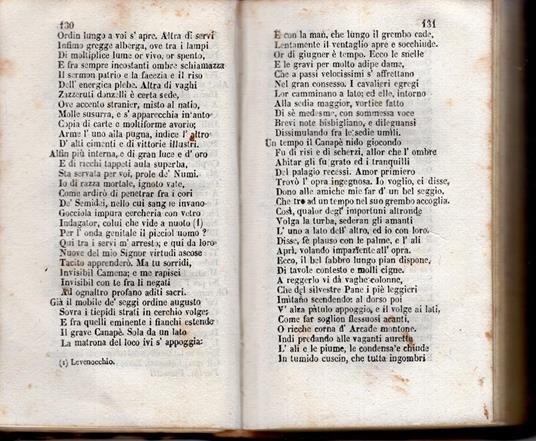 130
Ordin lungo a voi s' apre. Altra di servi
Infimo gregge alberga, ove tra i lampi
Di moltiplice lume or vivo, or spento,
E fra sempre incostanti ombre schiamazza
Il sermon patrio e la facezia e il riso
Dell' energica plebe. Altra di vaghi
Zazzeruti donzelli è certa sede,
Ove accento stranier, misto al natio,
Molle susurra, e s' apparecchia intanto
Copia di carte e moltiforme avorio,
Arme l' uno alla pugna, indice l' altro
D' alti cimenti e di vittorie illustri.
Alfin più interna, e di gran luce e d' oro
E di ricchi tappeti aula superba,
Sta servata per voi, prole de' Numi.
Io di razza mortale, ignoto vate,
Come ardirò di penetrar fra i cori
De' Semidei, nello cui sangue invano
Gocciola impura cercheria con vetro
Indagator, colui che vide a nuoto (1)
Per l' onda genitale il picciol uomo?
Qui tra i servi m' arresto; e qui da loro
Nuove del mio Signor virtudi ascose
Tacito apprenderò. Ma tu sorridi,
Invisibil Camena; e me rapisci
Invisibil con te fra li negati
Ad ognaltro profano aditi sacri.
Già il mobile de' seggi ordine augusto
Sovra i tiepidi strati in cerchio volge:
E fra quelli eminente i fianchi estende
Il grave Canapè. Sola da un lato
La matrona del loco ivi s' appoggia:
(1) Levenoechio.
131
E con la man, che lungo il grembo cade,
Lentamente il ventaglio apre e socchiude.
Or di giugner è tempo. Ecco le snelle
E le gravi per molto adipe dame,
Che a passi velocissimi s' affrettano
Nel gran consesso. I cavalieri egregi
Lor camminano a lato; ed elle, intorno
Alla sedia maggior, vortice fatto
Di sè medesme, con sommessa voce
Brevi note bisbigliano, e dileguansi
Dissimulando fra le sedie umili.
Un tempo il Canapè nido giocondo
Fu di risi e di scherzi, allor che l' ombre
Abitar gli fu grato ed i tranquilli
Del palagio recessi. Amor primiero
Trovò l' opra ingegnosa. Io voglio, ei disse,
Dono alle amiche mie far d' un bel seggio,
Che tre ad un tempo nel suo grembo accoglia.
Così, qualor degl' importuni altronde
Volga la turba, sederan gli amanti
L' uno a lato dell' altro, ed io con loro.
Disse, fè plauso con le palme, e l' ali
Aprì, volando impaziente all' opra.
Ecco, il bel fabbro lungo pian dispone,
Di tavole contesto e molli cigne.
A reggerlo vi dà vaghe colonne,
Che del silvestre Pane i piè leggieri
Imitano scendendo: al dorso poi
V' alza patulo appoggio, e il volge ai lati,
Come far soglion flessuosi acanti,
O ricche corna d' Arcade montone.
Indi predando alle vaganti aurette
L' ali e le piume, le condensa e chiude
In tumido cuscin, che tutta ingombri